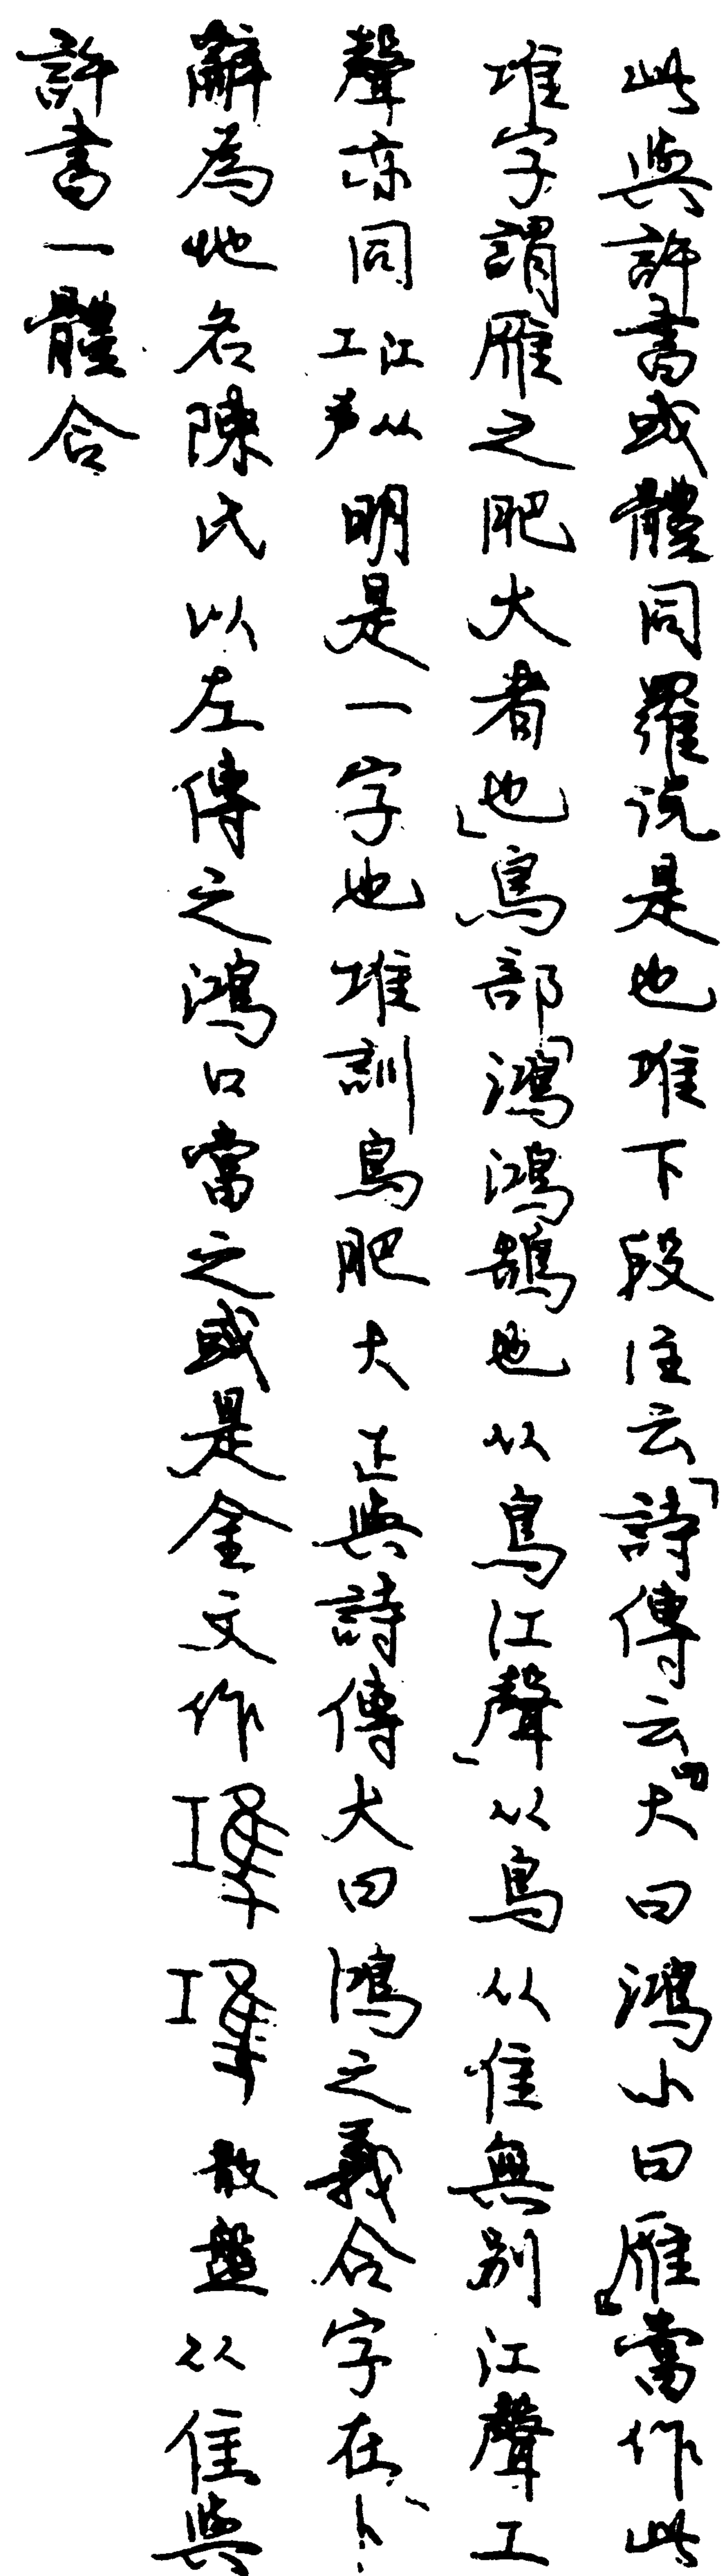 此與許書或體同羅說是也堆下段注云「詩傳云『大曰鴻小曰雁』當作此
堆字謂雁之肥大者也」鳥部「鴻鴻鵠也从鳥江聲」从鳥从隹無別江聲工
聲亦同江从工声明是一字也堆訓鳥肥大正與詩傳大曰鴻之義合字在卜
辭為地名陳氏以左傳之鴻口當之或是金文作 散盤从隹與
許書一體合